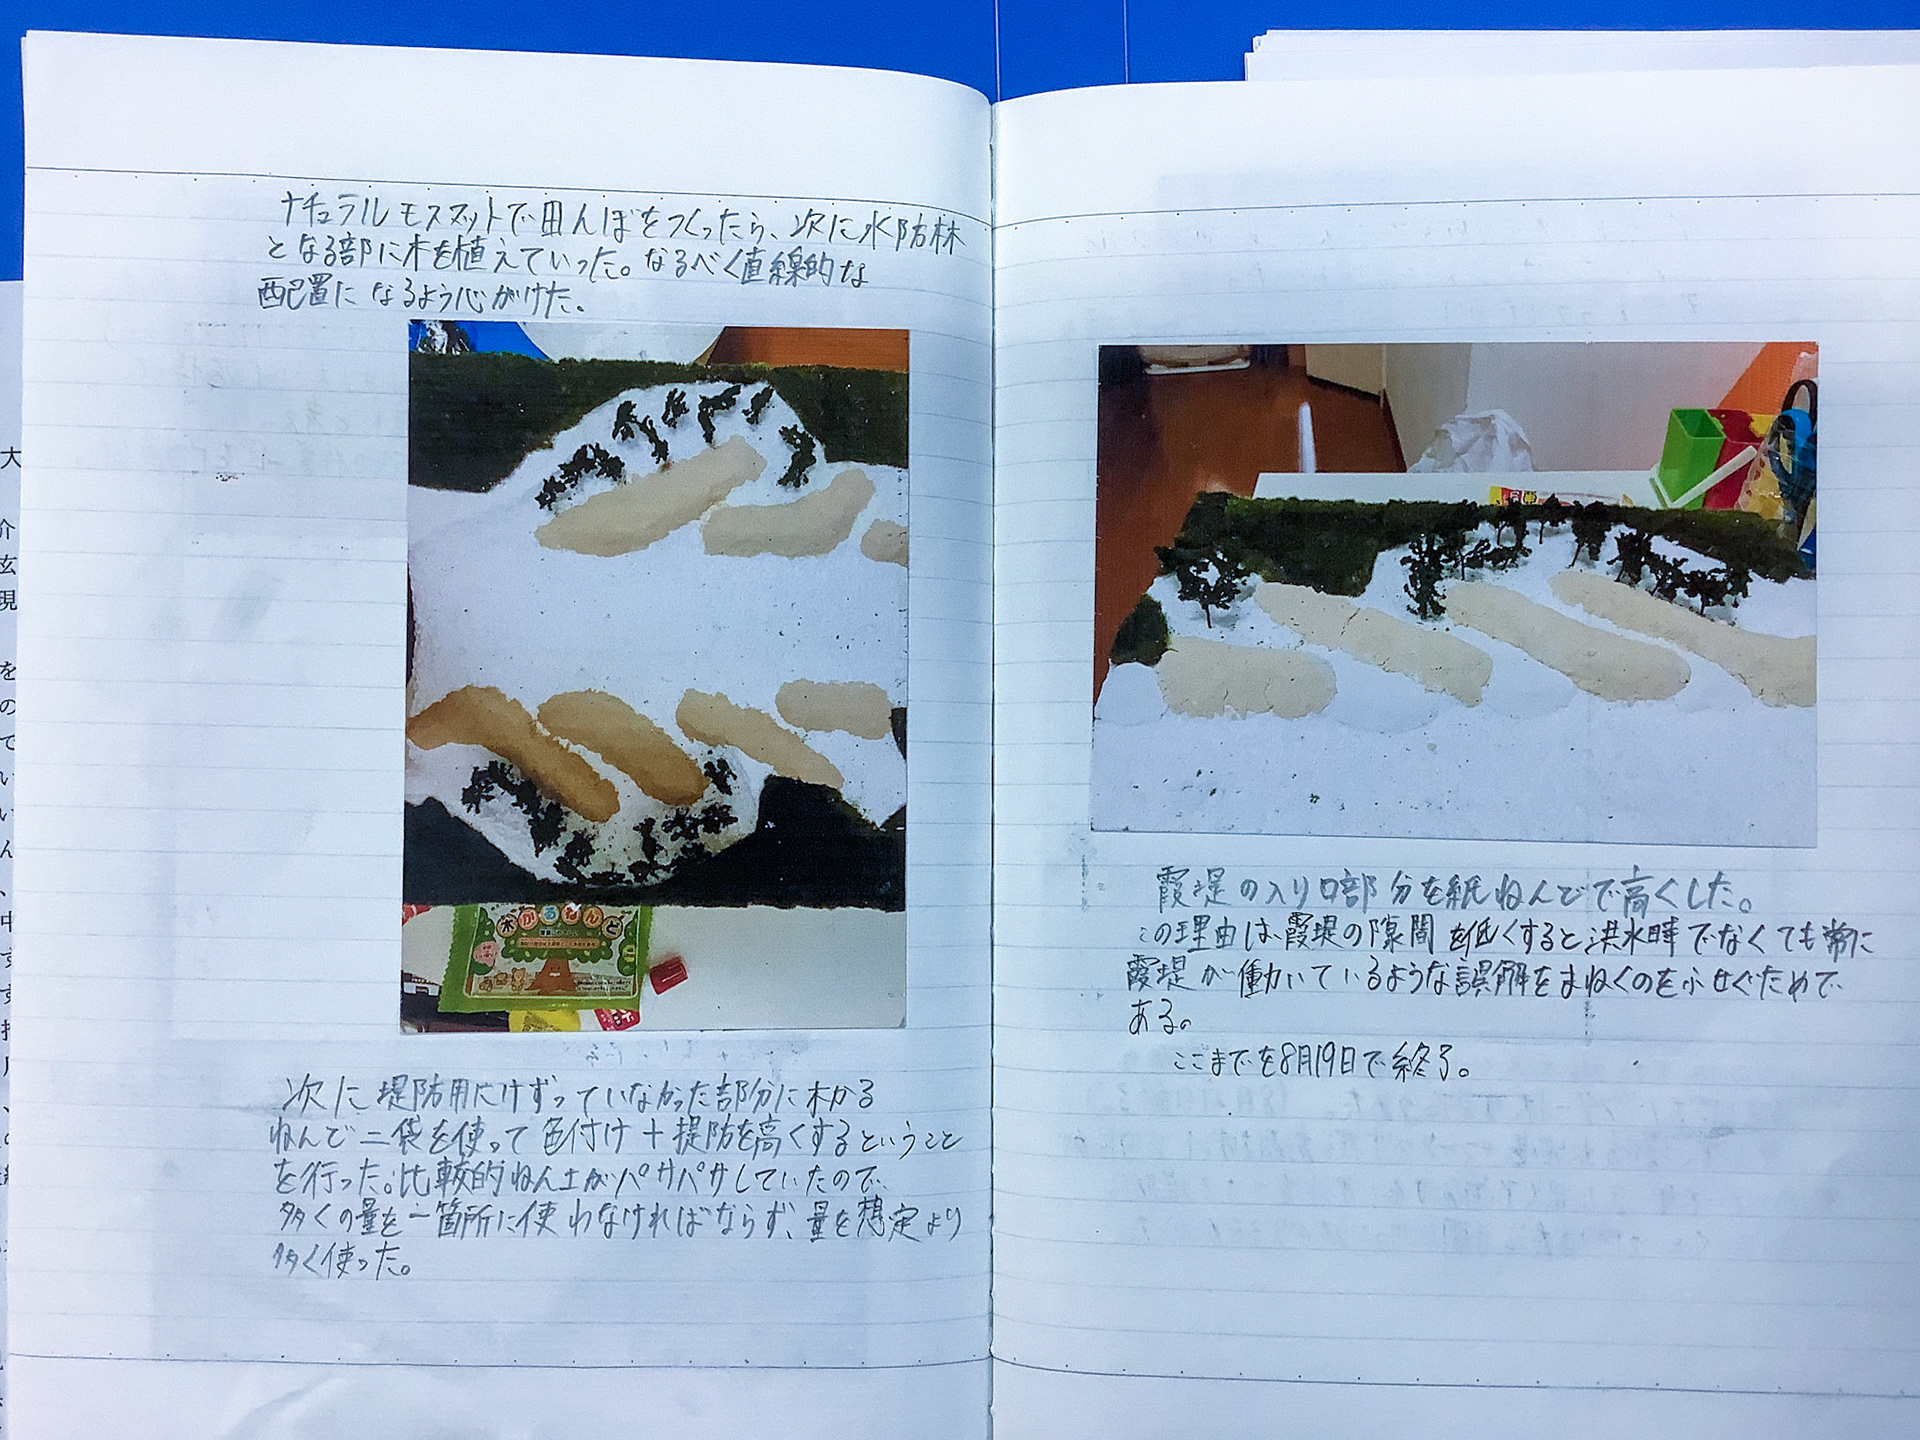 ナチュラルモスマットで田んぼをつくったら、次に水防林
となる部に木を植えていった。なるべく直線的な
配置になるよう心がけた。
木かるねんど
次に堤防用にけずっていなかった部分に木かる
ねんど二袋を使って色付け+提防を高くするということ
を行った。比較的ねん土がパサパサしていたので、
多くの量を一箇所に使わなければならず、量を想定より
多く使った。
霞堤の入り口部分を紙ねんどで高くした。
この理由は、霞堤の隙間を低くすると洪水時でなくても常に
霞堤が働いているような誤解をまねくのをふせぐためで
ある。
ここまでを8月19日で終了。
大
介
玄
現
を
の
て
い
い
ん
、
中